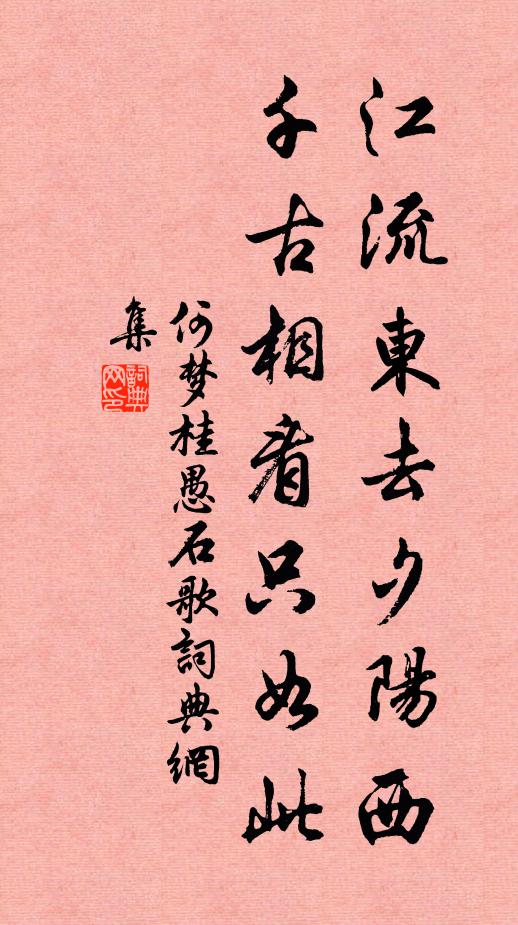 江流東去夕陽西
千古相看只如此
何梦桂愚石歌詞典網
集
詞典
网印